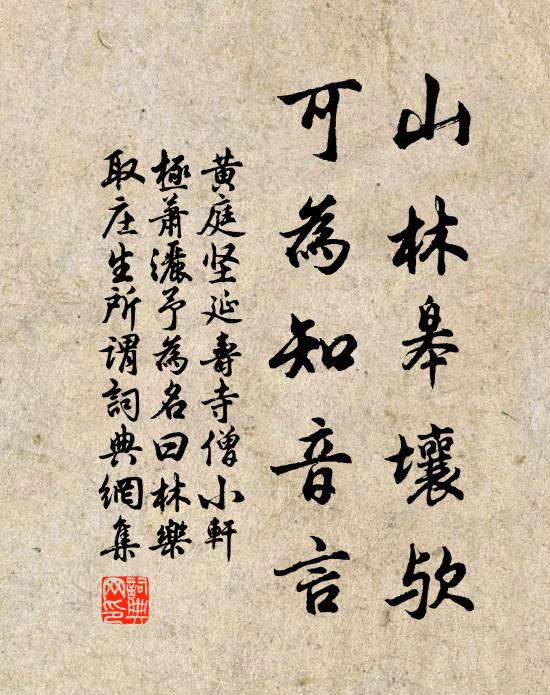 山林皋壤欤
可為知音言
黄庭坚延壽寺僧小軒
極蕭灑予為名曰林樂
取庄生所謂詞典網集
詞典网印